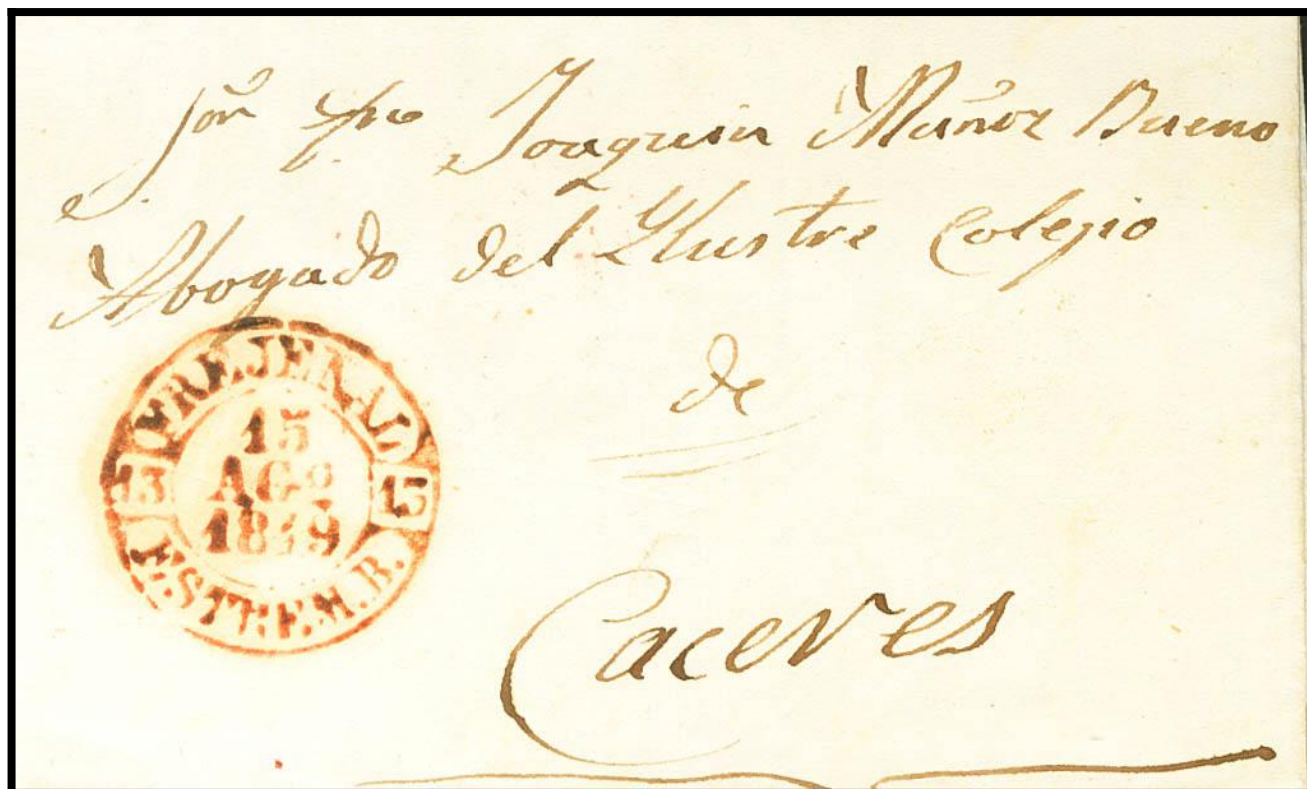 Sor Joaquin Muñoz Bueno
Abogado del Ylustre Colejio
de
Caceres
FREJENAL
15
AGO
1849
ESTREM. B.